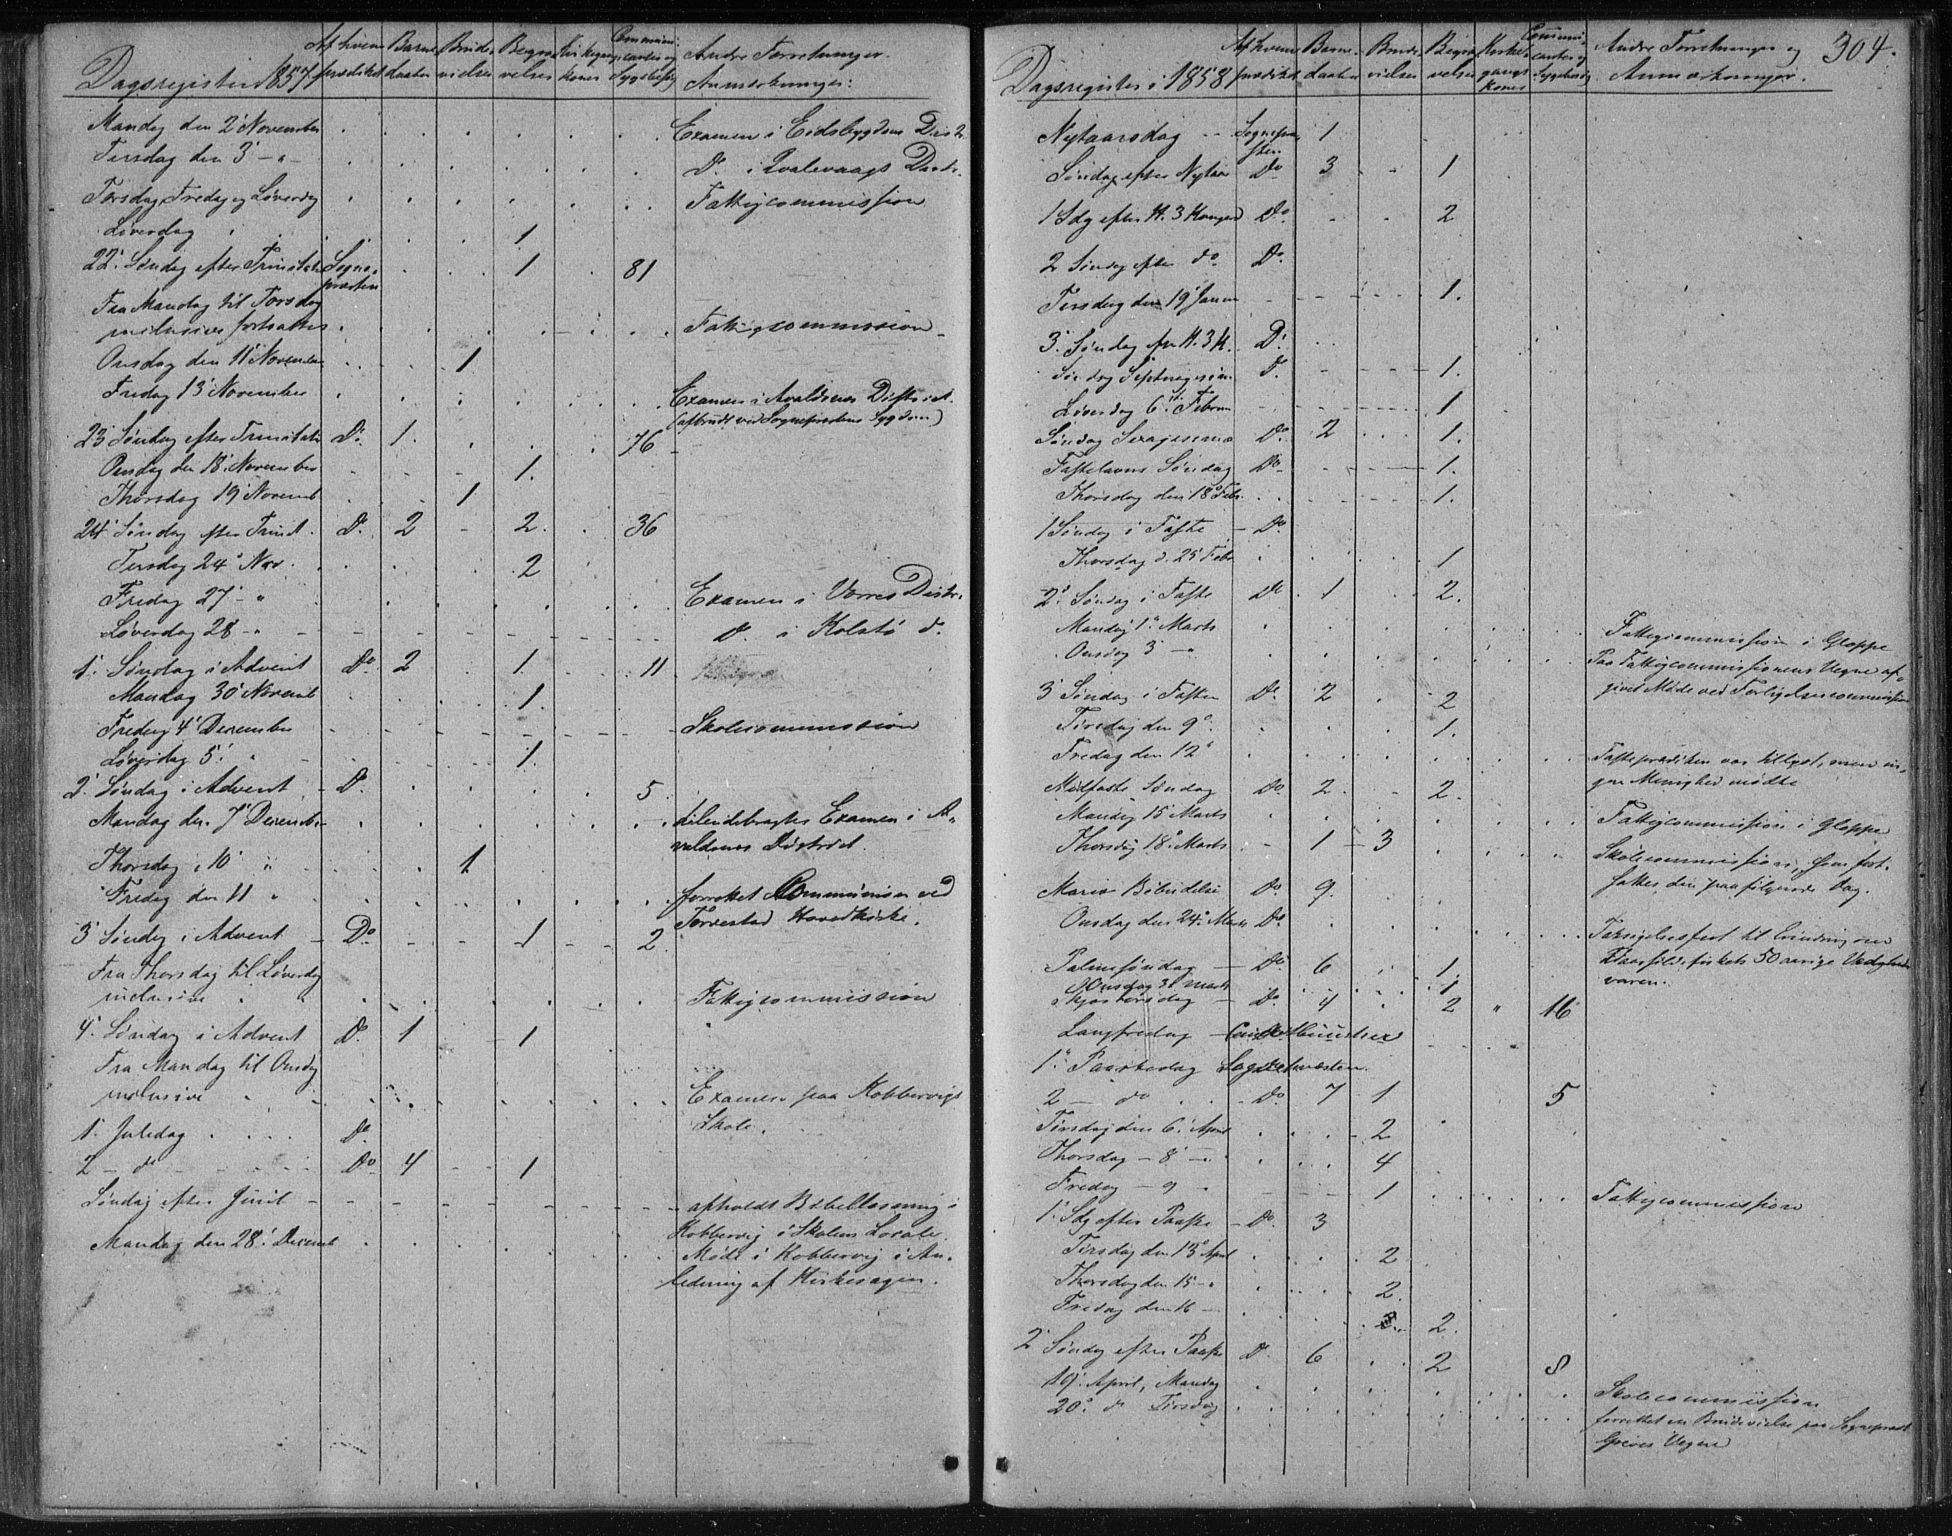 Dagsregister 1857
Af hvem prædiket
Barne daaber
Brude vielser
Begra velser
Kirkegangs koner
Communi canter og Sygebesøg
Andre Forretninger
Anmærkninger:
Mandag den 2' November Examen i Eidsbygdens Distr.
Tirsdag den 3' - " - Do. i Qvalevaags Distr.
Torsdag, Fredag og Løverdag Fattigcommission
Løverdag 1
22' Søndag efter Trinitatis Sogne præsten 1 81
Fra Mandag til Torsdag
inclusive fortsattes Fattigcommission
Onsdag den 11' November 1
Fredag 13' November Examen i Avaldsnes District
(afbrudt ved Sognepræstens Sygdom)
23' Søndag efter Trinitatis Do. 1. 76
Onsdag den 18' November 1.
Thorsdag 19' Novemb 1
24' Søndag efter Trinit. Do. 2 - 2. 36
Tirsdag 24' Nov. 2
Fredag 27 - " Examen i Vorres Distr.
Løverdag 28 - " - Do. i Kolstø do.
1' Søndag i Advent Do 2 1. 11
Mandag 30' Novemb 1.
Fredag 4' December Skolecommission
Løverdag 5' " 1.
2' Søndag i Advent Do. 5.
Mandag den 7' Decemb. tilendebragtes Examen i A-
valdsnes District.
Thorsdag 10' " 1
Fredag den 11 " forrettet Communion ved
Torvestad Hovedkirke.
3' Søndag i Advent - Do 1 2
Fra Thorsdag til Løverdag
inclusive Fattigcommission
4' Søndag i Advent Do. 1 1
Fra Mandag til Onsdag
inclusive Examen paa Kobbervigs
Skole.
1' Juledag Do.
2 - do - Do 4 1
Søndag efter Juul - afholdt Bibellæsning i
Kobbervig i Skolens Locale.
Mandag den 28' Decemb Møde i Kobbervig i An-
ledning af Kirkesagen.
304.
Dagsregister i 1858
Af hvem prædiket
Barne daaber
Brude vielser
Begra velser
Kirke gangs koner
Communi canter og Sygebesøg
Andre Forretninger og
Anmærkninger.
Nytaarsdag Sognepræ sten 1
Søndag efter Nytaar Do 3 1
1 Sdg efter H. 3 Konger Do. 2
2 Søndag efter do Do.
Tirsdag den 19' Januar 1.
3' Søndag efter H. 3 K. Do.
Søndag Septuagesima Do. 1.
Løverdag 6' Februar 1
Søndag Sexagesima Do. 2 1.
Fastelavns Søndag Do. 1.
Thorsdag den 18' Febr. 1.
1 Søndag i Faste - Do
Thorsdag d. 25' Febr 1
2' Søndag i Faste Do 1 2.
Mandag 1' Marts Fattigcommission i Gloppe
Onsdag 3 - " Paa Fattigcommissionens Vegne af-
givet Møde ved Forligelsescommission
3' Søndag i Fasten Do. 2 2
Tirsdag den 9' 1.
Fredag den 12' Fasteprædiken var tillyst, men in-
gen Menighed mødte
Midfaste Søndag Do. 2. 2.
Mandag 15' Marts Fattigcommission i Gloppe
Thorsdag 18' Marts 1 - 3 Skolecommission, som fort-
sattes den paafølgende Dag.
Mariæ Bebudelse Do. 9.
Onsdag den 24' Marts Do. Taksigelsesfest til Erindring om
Vaarsildefiskets 50 aarige Vedglied-
varen.
Palmesøndag Do. 6 1.
Onsdag 31 Marts 1
Skjærtorsdag Do. 4 2 " 16
Langfredag -
1' Paaskedag Sognepræsten
2 - do Do 7 1 5
Tirsdag den 6' April 2
Thorsdag - 8' - 4
Fredag - 9 - 1 Fattigcommission
1' Sdg efter Paaske - Do. 3
Tirsdag den 13' April 2
Thorsdag den 15 - " 2
Fredag den 16 - 2.
2' Søndag efter Paaske Do. 6 2 8
19' April, Mandag Skolecommission
20' do Tirsdag forrettet en Brudevielse paa Sognepræst
Greves Vegne